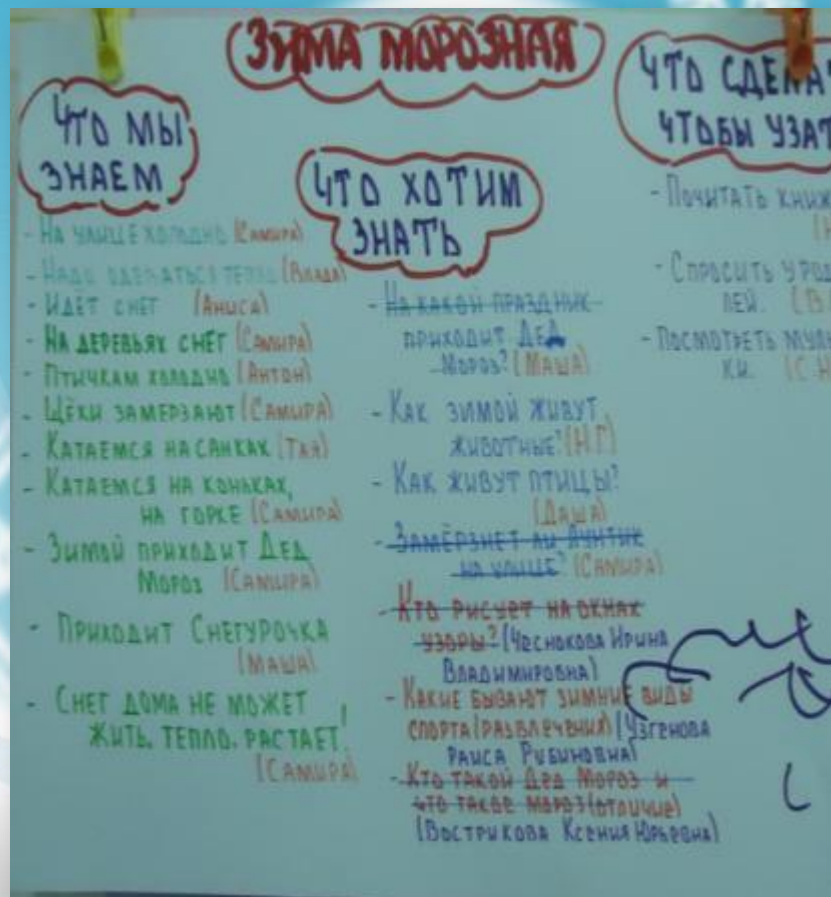 ЗИМА МОРОЗНАЯ
ЧТО МЫ
ЗНАЕМ
- НА УЛИЦЕ ХОЛОДНО (САМИРА)
- НАДО ОДЕВАТЬСЯ ТЕПЛО (ВЛАДА)
- ИДЁТ СНЕГ (АНИСА)
- НА ДЕРЕВЬЯХ СНЕГ (САМИРА)
- ПТИЧКАМ ХОЛОДНО (АНТОН)
- ЩЁКИ ЗАМЕРЗАЮТ (САМИРА)
- КАТАЕМСЯ НА САНКАХ (ТАЯ)
- КАТАЕМСЯ НА КОНЬКАХ,
НА ГОРКЕ (САМИРА)
- ЗИМОЙ ПРИХОДИТ ДЕД
МОРОЗ (САМИРА)
- ПРИХОДИТ СНЕГУРОЧКА
(МАША)
- СНЕГ ДОМА НЕ МОЖЕТ
ЖИТЬ, ТЕПЛО, РАСТАЕТ!
(САМИРА)
ЧТО ХОТИМ
ЗНАТЬ
- НА КАКОЙ ПРАЗДНИК
ПРИХОДИТ ДЕД
МОРОЗ? (МАША)
- КАК ЗИМОЙ ЖИВУТ
ЖИВОТНЫЕ? (Н.Г)
- КАК ЖИВУТ ПТИЦЫ?
(ДАША)
- ЗАМЁРЗНЕТ ЛИ ЛУНТИК
НА УЛИЦЕ? (САМИРА)
- КТО РИСУЕТ НА ОКНАХ
УЗОРЫ? (ЧЕСНОКОВА ИРИНА
ВЛАДИМИРОВНА)
- КАКИЕ БЫВАЮТ ЗИМНИЕ ВИДЫ
СПОРТА (РАЗВЛЕЧЕНИЯ) (УЗГЕНОВА
РАИСА РУБИНОВНА)
- КТО ТАКОЙ ДЕД МОРОЗ И
ЧТО ТАКОЕ МОРОЗ (ОТЛИЧИЕ)
(ВОСТРИКОВА КСЕНИЯ ЮРЬЕВНА)
ЧТО СДЕЛАТ
ЧТОБЫ УЗАТ
- ПОЧИТАТЬ КНИЖ
- СПРОСИТЬ У РОД
ЛЕЙ. (В
- ПОСМОТРЕТЬ МУЛЬ
КИ. (С.Н